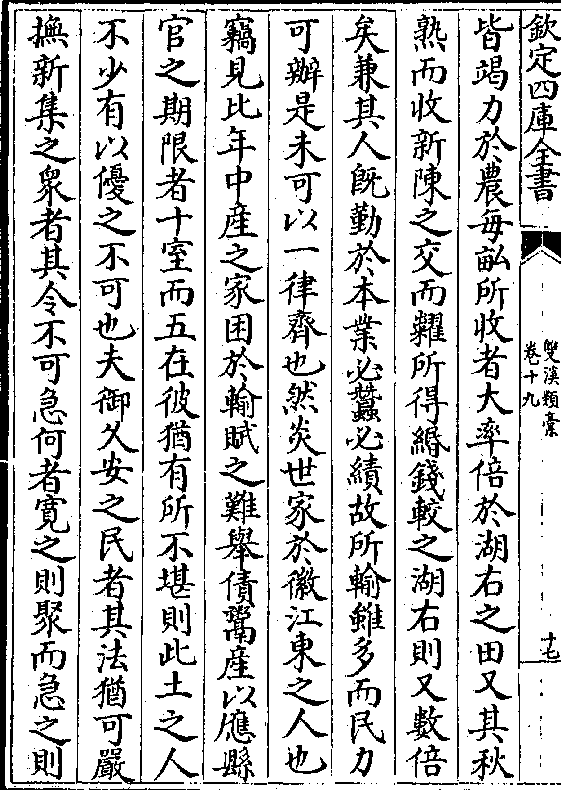 欽定四庫全書
雙溪類稾
卷十九
十七
皆竭力於農每畝所收者大率倍於湖右之田又其秋
熟而收新陳之交而糶所得緡錢較之湖右則又數倍
矣兼其人既勤於本業必蠶必績故所輸雖多而民力
可辦是未可以一律齊也然炎世家於徽江東之人也
竊見比年中産之家困於輸賦之難舉債鬻産以應縣
官之期限者十室而五在彼猶有所不堪則此土之人
不少有以優之不可也夫御久安之民者其法猶可嚴
撫新集之衆者其令不可急何者寛之則聚而急之則